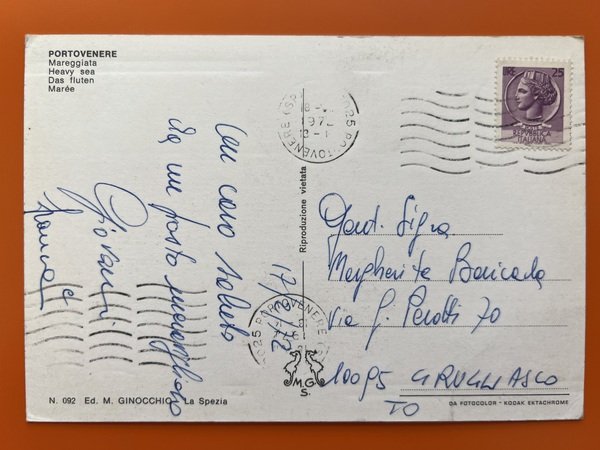 PORTOVENERE
Mareggiata
Heavy sea
Das fluten
Marée
LIRE 25
REPVBBLICA
ITALIANA
1972
PORTOVENERE
Riproduzione vietata
Un caro saluto
da un posto meraviglioso
Giovanni
17/8/72
Gent. Sig.ra
Margherita
Via G. Perotti 70
10095 GRUGLIASCO
TO
19025 PORTOVENERE
M.G.
S.
N. 092 Ed. M. GINOCCHIO - La Spezia
DA FOTOCOLOR - KODAK EKTACHROME